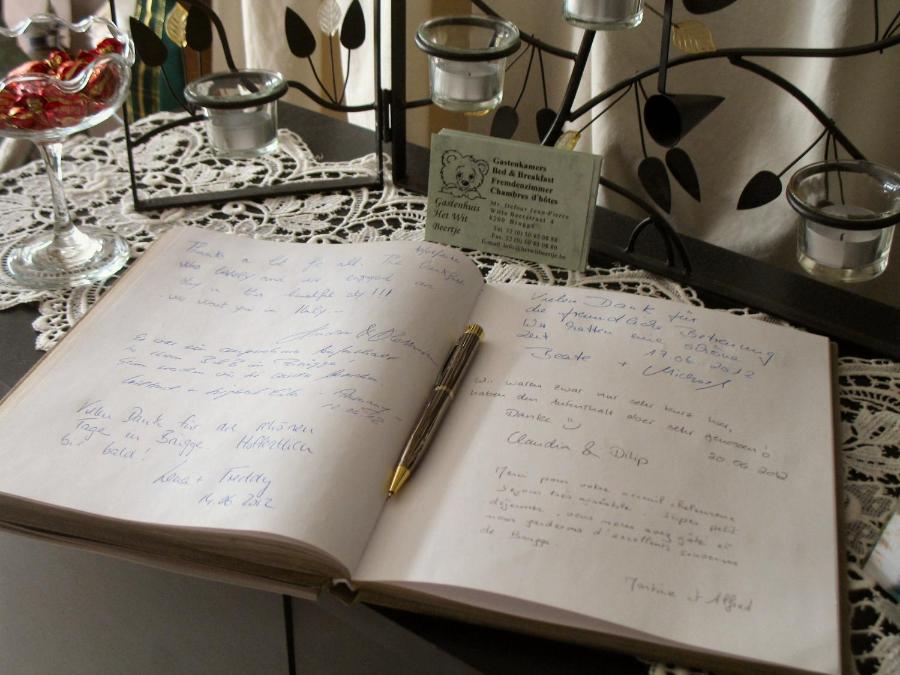 Gastenkamers
Bed & Breakfast
Fremdenzimmer
Chambres d'hôtes
Gastenhuis
Het Wit
Beertje
Mr. Defour Jean-Pierre
Witte Beerstraat 4
8200 Brugge
Tel. 32 (0) 50 45 08 88
Fax. 32 (0) 50 45 08 89
E-mail: info@hetwitbeertje.be
Thanks a lot for all. The breakfast
was lovely and we enjoyed our
stay in this beautiful city!!!
we want you in Italy
Es war ein angenehmer Aufenthalt
in Ihrem B&B in Brügge.
Vielen Dank für die schönen
Tage in Brügge. Hoffentlich
bis bald!
Lena + Freddy
14.06.2012
Vielen Dank für
die freundliche Betreuung
Wir hatten eine schöne
Zeit 19.06.2012
Beate + Michael
Wir waren zwar nur sehr kurz hier,
haben den Aufenthalt aber sehr genossen!
Danke :)
20.06.2012
Claudia & Dilip
Merci pour votre accueil chaleureux
Séjour très agréable. Super petit
déjeuner, vous nous avez gâté et
nous garderons d'excellents souvenirs
de Bruges.
Martine et Alfred